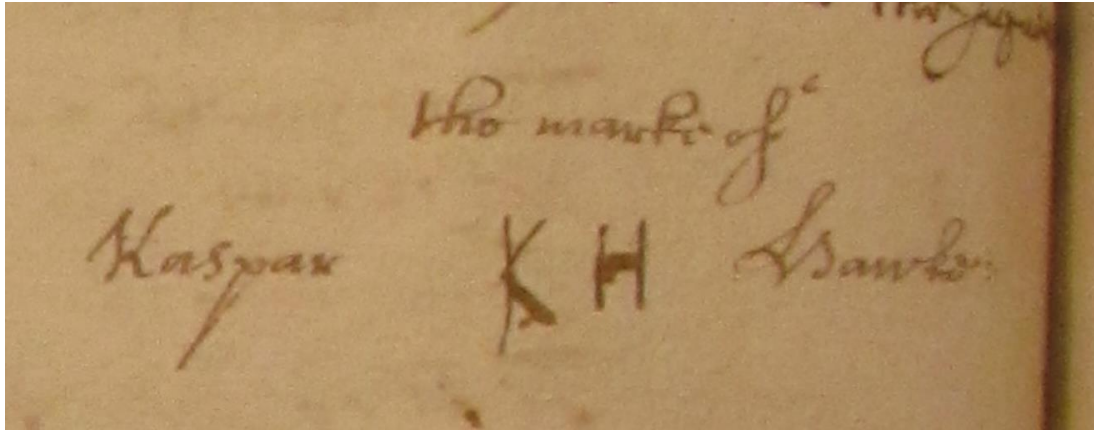 the marke of
Kaspar KH Hawke